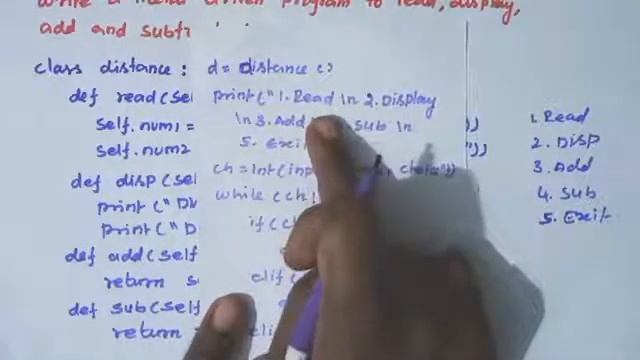 write a menu driven program to read, display,
add and subtr
class distance:
def read(sel
self.num1 =
self.num2
def disp(sel
print("Di
print("D
def add(self
return s
def sub(self
return
d = distance()
print("1.Read \n 2.Display
\n 3.Add sub \n
5. Exit
ch = int(inp choice"))
while (ch
if (ch
elif (
eli
))
"))
1. Read
2. Disp
3. Add
4. Sub
5. Exit